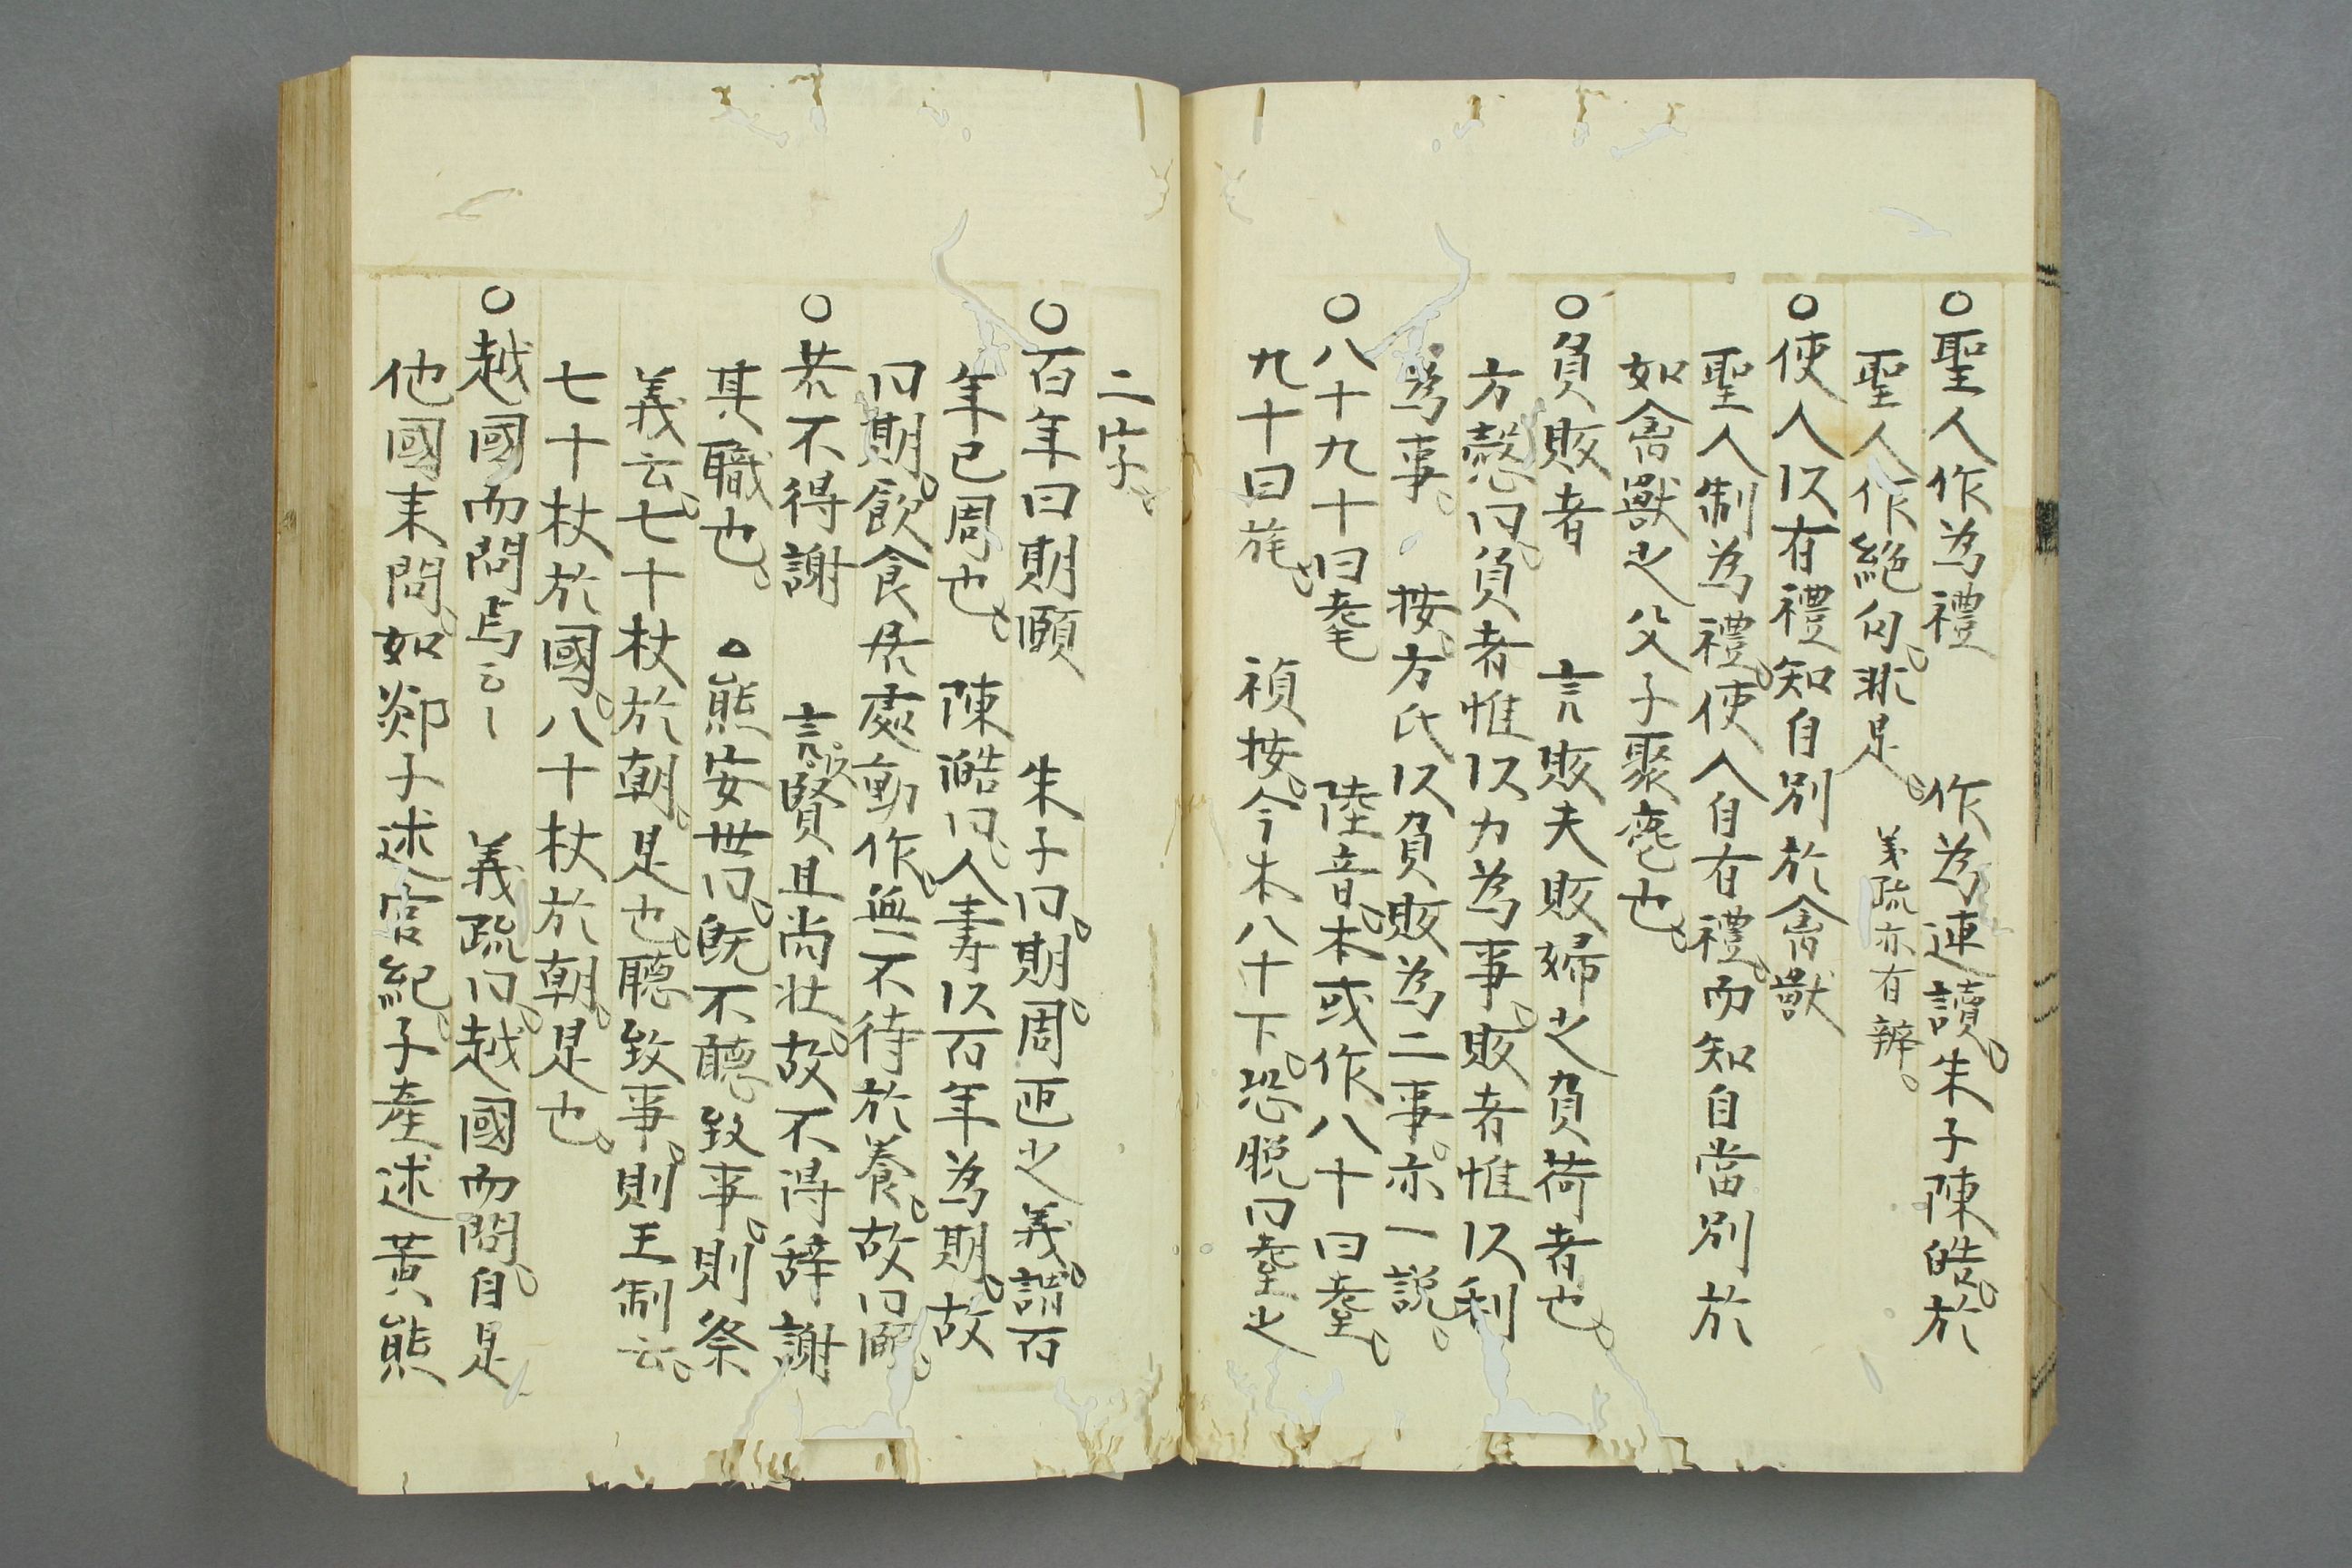 ○聖人作為禮　作為連讀。朱子陳皓。於
聖人作絶句。非是。義疏亦有辨。
○使人以有禮知自別於禽獸
聖人制為禮。使人自有禮。而知自當別於
如禽獸之父子聚麀也。
○負販者　言販夫販婦之負荷者也。
方慤曰。負者惟以力為事。販者惟以利
為事。　按。方氏以負販為二事。亦一説。
○八十九十曰耄　陸音。本或作八十曰耋。
九十曰旄。　禎按。今本八十下。恐脱曰耋之
二字。
○百年曰期頤　朱子曰。期。周匝之義。謂百
年已周也。　陳澔曰。人壽以百年為期。故
曰期。飲食居處動作。無不待於養。故曰頤。
○若不得謝　言。以賢且尚壮。故不得辞謝
其職也。　○熊安世曰。既不聽致事。則祭
義云。七十杖於朝。是也。聽致事。則王制云。
七十杖於國。八十杖於朝。是也。
○越國而問焉云〻　義疏曰。越國而問。自是
他國来問。如郯子述官紀。子産述黄熊